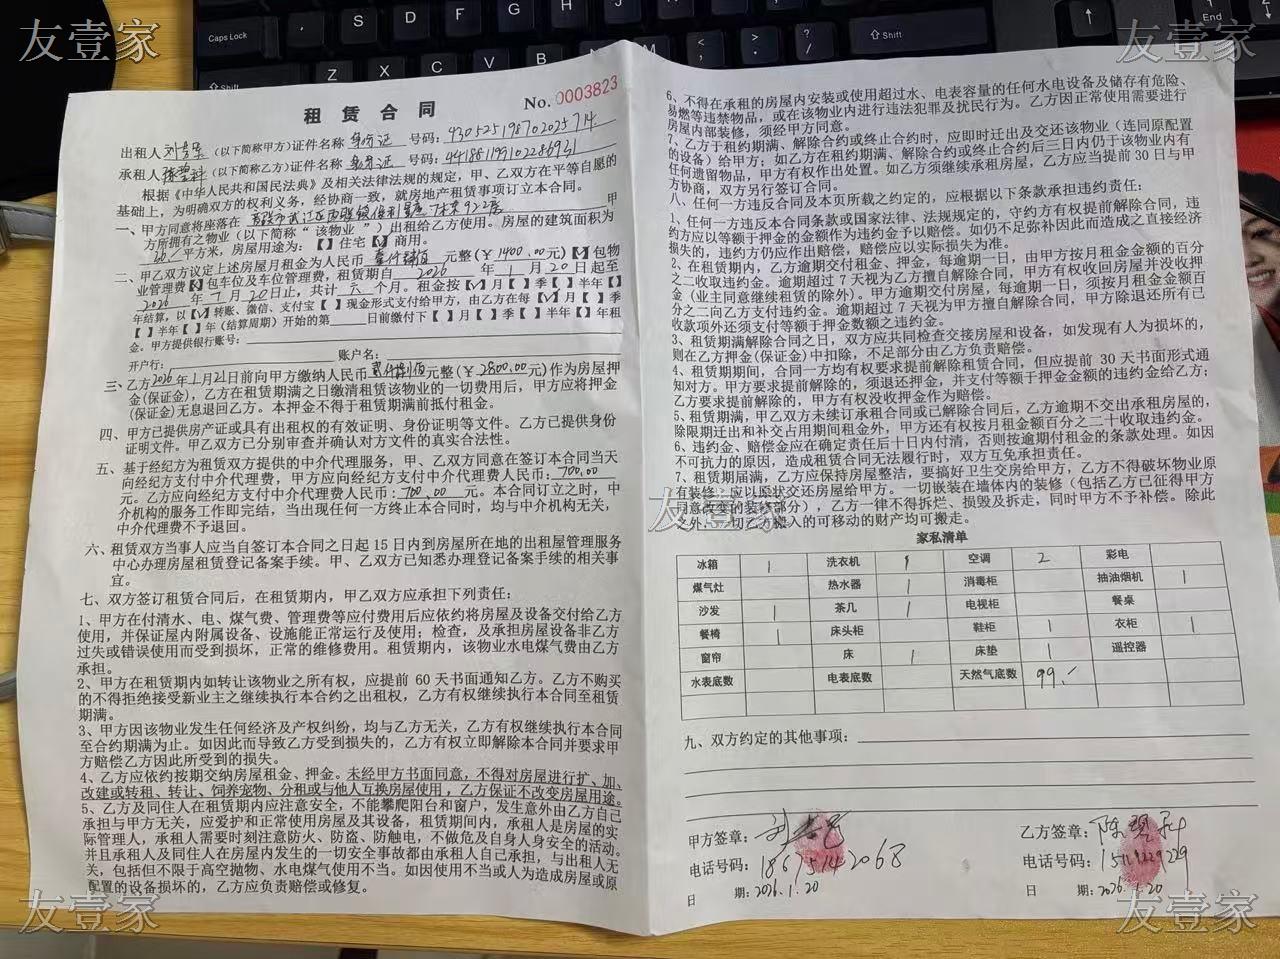 友壹家
友壹家
租 赁 合 同
No.0003823
出租人 (以下简称甲方)证件名称 身份证 号码:
承租人 (以下简称乙方)证件名称 身份证 号码:
根据《中华人民共和国民法典》及相关法律法规的规定，甲、乙双方在平等自愿的
基础上，为明确双方的权利义务，经协商一致，就房地产租赁事项订立本合同。
一、甲方同意将座落在
方所拥有之物业（以下简称“该物业”）出租给乙方使用。房屋的建筑面积为
平方米，房屋用途为：【 】住宅【√】商用。
二、甲乙双方议定上述房屋月租金为人民币 壹仟肆佰 元整(￥1400.00元)【 】包物
业管理费【 】包车位及车位管理费，租赁期自 2026 年 1 月 20 日起至
2026 年 7 月 20 日止，共计 六 个月。租金按【√】月【 】季【 】半年【 】
年结算，以【√】转账、微信、支付宝【 】现金形式支付给甲方，由乙方在每【√】月【 】季
【 】半年【 】年（结算周期）开始的第 日前缴付下【 】月【 】季【 】半年【 】年租
金。甲方提供银行账号：
开户行： 账户名：
三、乙方2026年1月21日前向甲方缴纳人民币 贰仟捌佰 元整(￥2800.00元)作为房屋押
金(保证金)，乙方在租赁期满之日缴清租赁该物业的一切费用后，甲方应将押金
(保证金)无息退回乙方。本押金不得于租赁期满前抵付租金。
四、甲方已提供房产证或具有出租权的有效证明、身份证明等文件。乙方已提供身份
证明文件。甲乙双方已分别审查并确认对方文件的真实合法性。
五、基于经纪方为租赁双方提供的中介代理服务，甲、乙双方同意在签订本合同当天
向经纪方支付中介代理费，甲方应向经纪方支付中介代理费人民币：700.00
元。乙方应向经纪方支付中介代理费人民币：700.00 元。本合同订立之时，中
介机构的服务工作即完结，当出现任何一方终止本合同时，均与中介机构无关，
中介代理费不予退回。
六、租赁双方当事人应当自签订本合同之日起 15 日内到房屋所在地的出租屋管理服务
中心办理房屋租赁登记备案手续。甲、乙双方已知悉办理登记备案手续的相关事
宜。
七、双方签订租赁合同后，在租赁期内，甲乙双方应承担下列责任：
1、甲方在付清水、电、煤气费、管理费等应付费用后应依约将房屋及设备交付给乙方
使用，并保证屋内附属设备、设施能正常运行及使用；检查，及承担房屋设备非乙方
过失或错误使用而受到损坏，正常的维修费用。租赁期内，该物业水电煤气费由乙方
承担。
2、甲方在租赁期内如转让该物业之所有权，应提前 60 天书面通知乙方。乙方不购买
的不得拒绝接受新业主之继续执行本合约之出租权，乙方有权继续执行本合同至租赁
期满。
3、甲方因该物业发生任何经济及产权纠纷，均与乙方无关，乙方有权继续执行本合同
至合约期满为止。如因此而导致乙方受到损失的，乙方有权立即解除本合同并要求甲
方赔偿乙方因此所受到的损失。
4、乙方应依约按期交纳房屋租金、押金。未经甲方书面同意，不得对房屋进行扩、加、
改建或转租、转让、饲养宠物、分租或与他人互换房屋使用，乙方保证不改变房屋用途。
5、乙方及同住人在租赁期内应注意安全，不能攀爬阳台和窗户，发生意外由乙方自己
承担与甲方无关，应爱护和正常使用房屋及其设备，租赁期间内，承租人是房屋的实
际管理人，承租人需要时刻注意防火、防盗、防触电，不做危及自身人身安全的活动。
并且承租人及同住人在房屋内发生的一切安全事故都由承租人自己承担，与出租人无
关，包括但不限于高空抛物、水电煤气使用不当。如因使用不当或人为造成房屋或原
配置的设备损坏的，乙方应负责赔偿或修复。
6、不得在承租的房屋内安装或使用超过水、电表容量的任何水电设备及储存有危险、
易燃等违禁物品，或在该物业内进行违法犯罪及扰民行为。乙方因正常使用需要进行
房屋内部装修，须经甲方同意。
7、乙方于租约期满、解除合约或终止合约时，应即时迁出及交还该物业（连同原配置
的设备）给甲方；如乙方在租约期满、解除合约或终止合约后三日内仍于该物业内有
任何遗留物品，甲方有权作出处置。如乙方须继续承租房屋，乙方应当提前 30 日与甲
方协商，双方另行签订合同。
八、任何一方违反合同及本页所载之约定的，应根据以下条款承担违约责任：
1、任何一方违反本合同条款或国家法律、法规规定的，守约方有权提前解除合同，违
约方应以等额于押金的金额作为违约金予以赔偿。如仍不足弥补因此而造成之直接经济
损失的，违约方仍应作出赔偿，赔偿应以实际损失为准。
2、在租赁期内，乙方逾期交付租金、押金，每逾期一日，由甲方按月租金金额的百分
之二收取违约金。逾期超过 7 天视为乙方擅自解除合同，甲方有权收回房屋并没收押
金（业主同意继续租赁的除外）。甲方逾期交付房屋，每逾期一日，须按月租金金额百
分之二向乙方支付违约金。逾期超过 7 天视为甲方擅自解除合同，甲方除退还所有已
收款项外还须支付等额于押金数额之违约金。
3、租赁期满解除合同之日，双方应共同检查交接房屋和设备，如发现有人为损坏的，
则在乙方押金(保证金)中扣除，不足部分由乙方负责赔偿。
4、租赁期期间，合同一方均有权要求提前解除租赁合同，但应提前 30 天书面形式通
知对方。甲方要求提前解除的，须退还押金，并支付等额于押金金额的违约金给乙方；
乙方要求提前解除的，甲方有权没收押金作为赔偿。
5、租赁期满，甲乙双方未续订承租合同或已解除合同后，乙方逾期不交出承租房屋的，
除限期迁出和补交占用期间租金外，甲方还有权按月租金额百分之二十收取违约金。
6、违约金、赔偿金应在确定责任后十日内付清，否则按逾期付租金的条款处理。如因
不可抗力的原因，造成租赁合同无法履行时，双方互免承担责任。
7、租赁期届满，乙方应保持房屋整洁，要搞好卫生交房给甲方，乙方不得破坏物业原
有装修，应以原状交还房屋给甲方。一切嵌装在墙体内的装修（包括乙方已征得甲方
同意改变的装修部分），乙方一律不得拆烂、损毁及拆走，同时甲方不予补偿。除此
之外，一切乙方搬入的可移动的财产均可搬走。
友壹家
家私清单
冰箱 1 洗衣机 1 空调 2 彩电
煤气灶 热水器 1 消毒柜 抽油烟机 1
沙发 1 茶几 1 电视柜 餐桌
餐椅 1 床头柜 鞋柜 1 衣柜 1
窗帘 床 1 床垫 1 遥控器
水表底数 电表底数 天然气底数 99.
九、双方约定的其他事项：
甲方签章：
电话号码：18675142068
日 期：2026.1.20
乙方签章：
电话号码：
日 期：2026.1.20
友壹家
友壹家